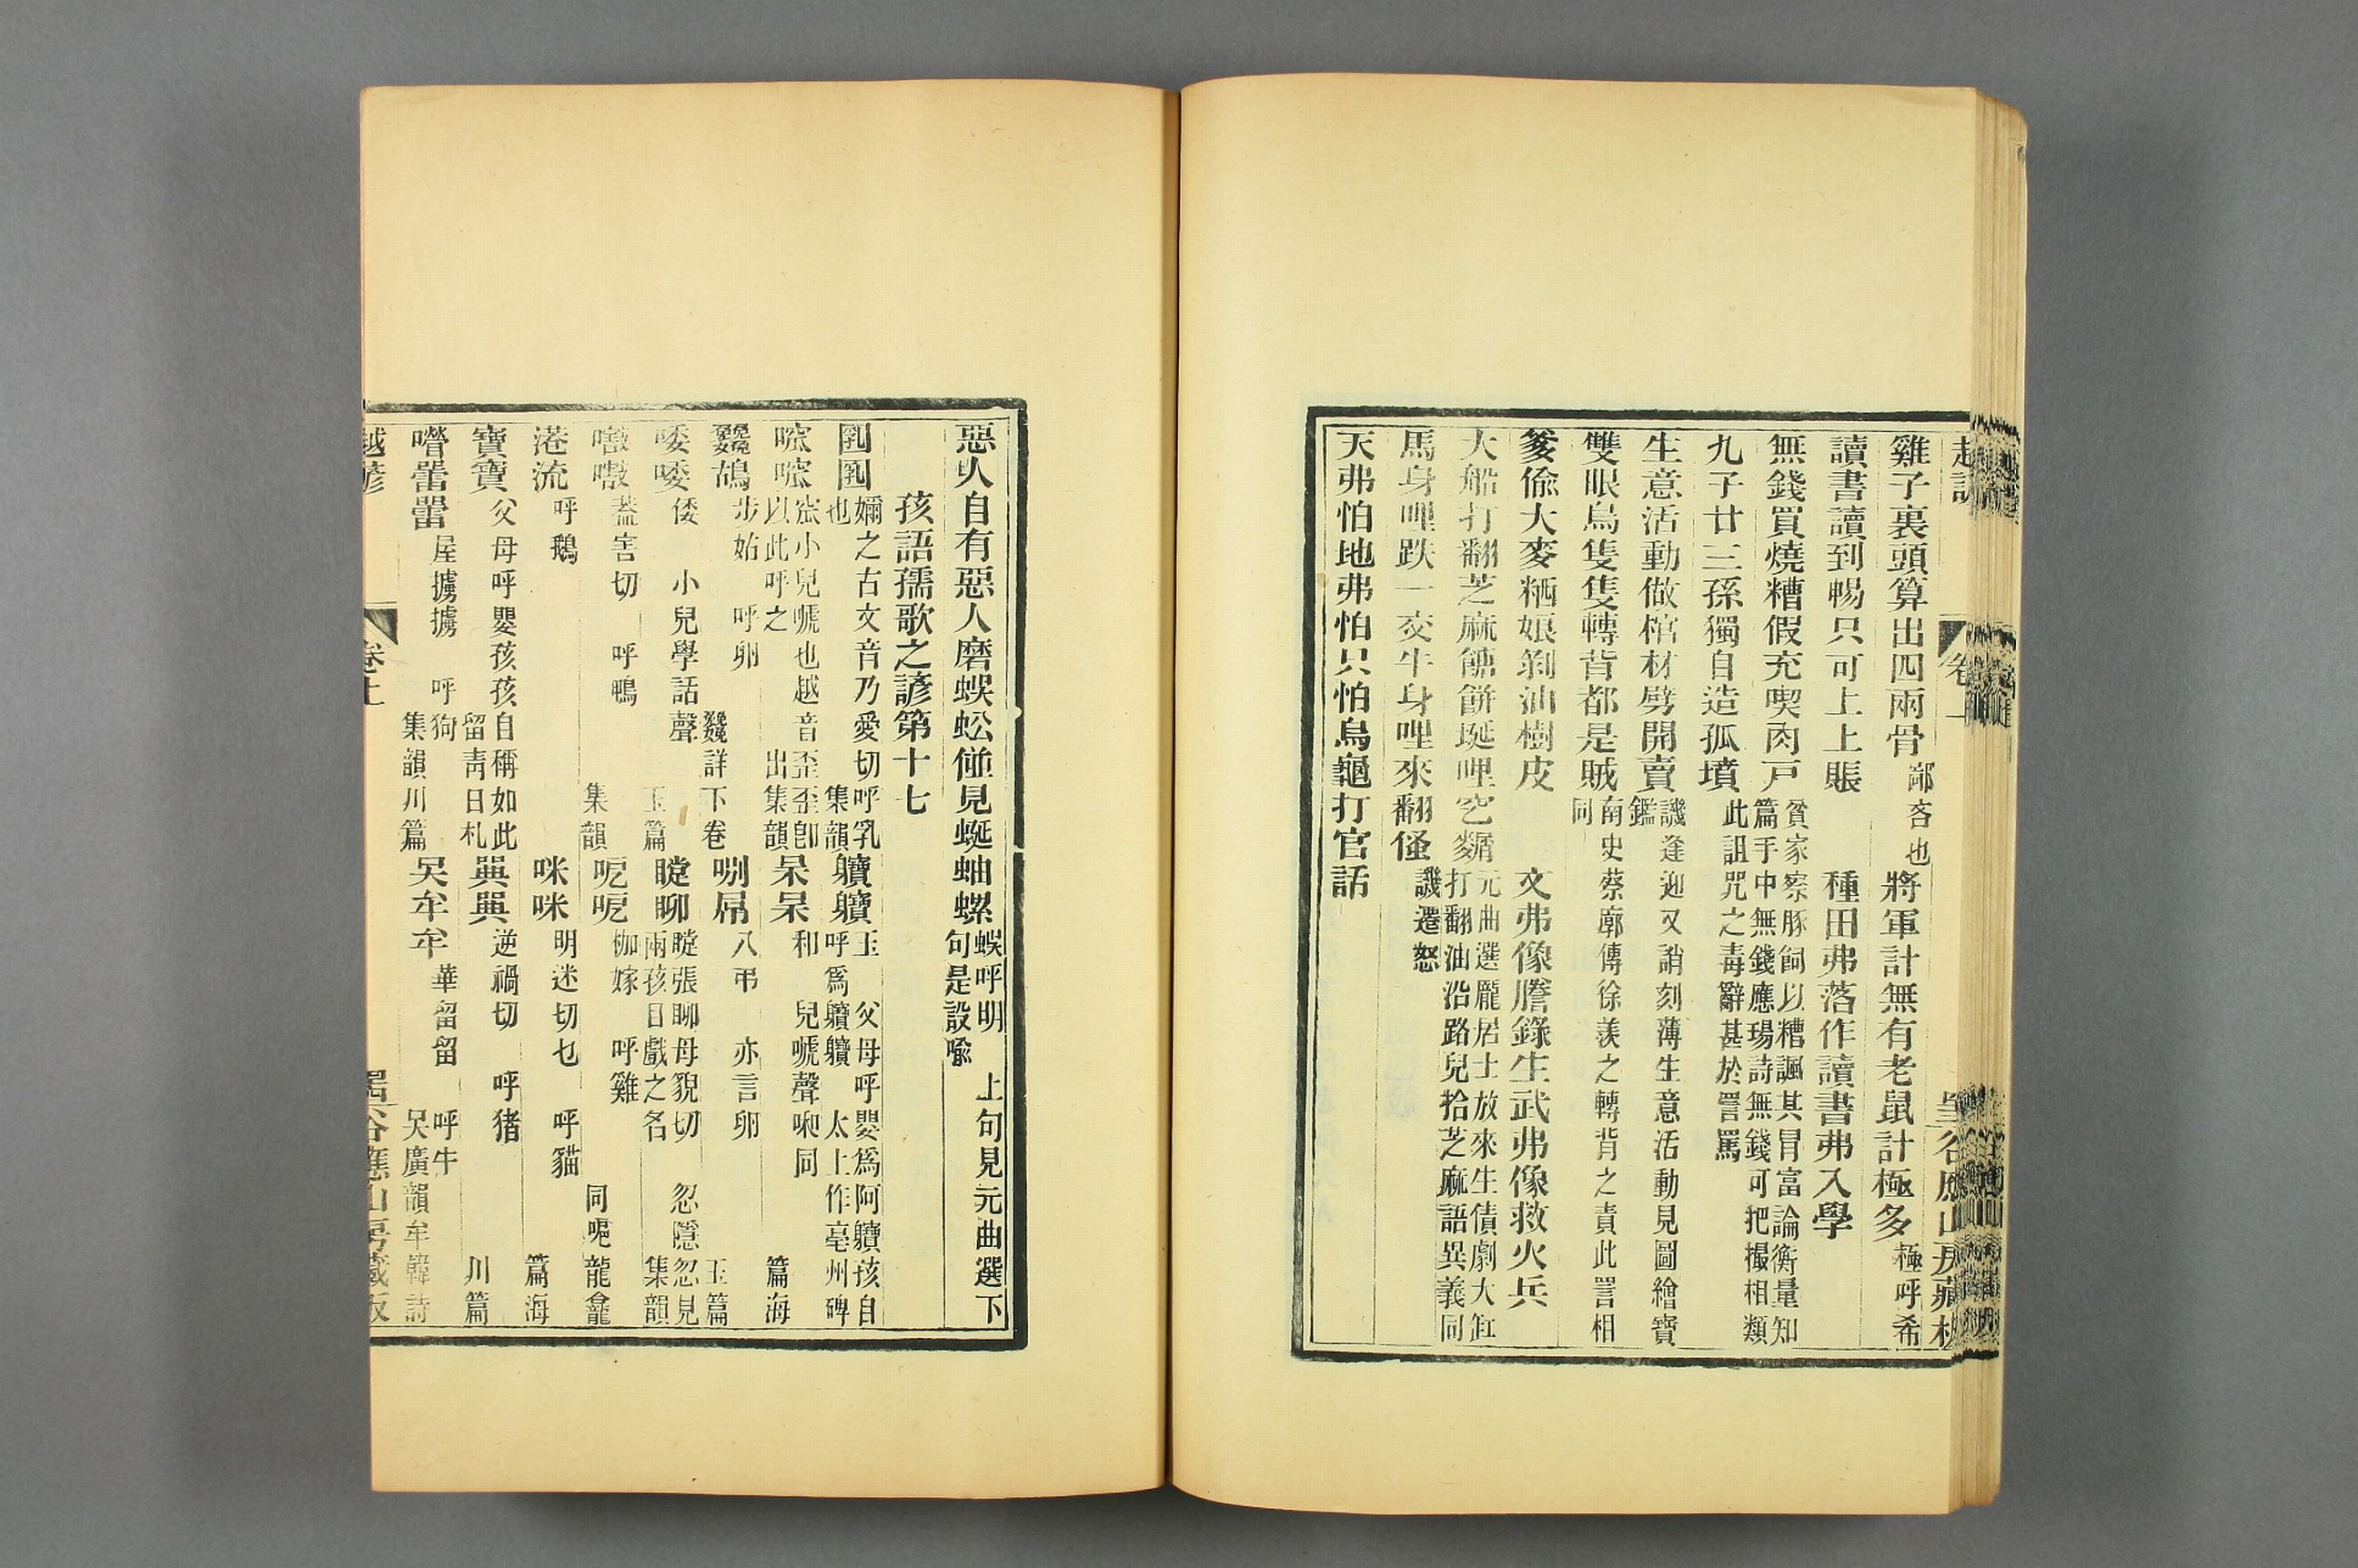 雞子裏頭算出四兩骨鄙吝也　將軍計無有老鼠計極多極呼希
讀書讀到暢只可上上賬　種田弗落作讀書弗入學
無錢買燒糟假充喫肉戸貧家察豚飼以糟諷其冒富論衡量知篇手中無錢應瑒詩無錢可把撮相類
九子廿三孫獨自造孤墳此詛咒之毒辭甚於詈罵
生意活動做棺材劈開賣譏逢迎又誚刻薄生意活動見圖繪寶鑑
雙眼烏隻隻轉背都是賊南史蔡廓傳徐羨之轉背之責此詈相同
爹偸大麥粞娘剝油樹皮　文弗像謄錄生武弗像救火兵
大船打翻芝麻餹餅埏哩空麫屑元曲選龐居士放來生債劇大缸打翻油沿路兒拾芝麻語異義同
馬身哩跌一交牛身哩來翻譏遷怒
天弗怕地弗怕只怕烏龜打官話
惡人自有惡人磨蜈蚣碰見蜒蚰螺蜈呼明　上句見元曲選下句是設喩
孩語孺歌之諺第十七
嬭之古文音乃愛切呼乳也　集韻　父母呼嬰爲阿孩自呼爲　太上作亳州碑
小兒嗁也越音歪歪卽以此呼之　出集韻　呆呆和　兒嗁聲同　篇海
步始　呼卵　詳下卷　八弔　亦言卵　玉篇
唩唩倭　小兒學話聲　玉篇　瞠聊瞠張聊母貌切　忍隱忽見兩孩目戲之名　集韻
噾噾蓋害切　呼鴨　集韻　呝呝枷嫁　呼雞　同呃龍龕
港流呼鵝　咪咪明迷切乜　呼貓　篇海
寶寶父母呼嬰孩孩自稱如此留靑日札　逆禍切　呼猪　川篇
屋擄擄　呼狗　集韻川篇　吳牟牟華留留　呼牛　吳廣韻牟韓詩
越諺　卷上　谷應山房藏板